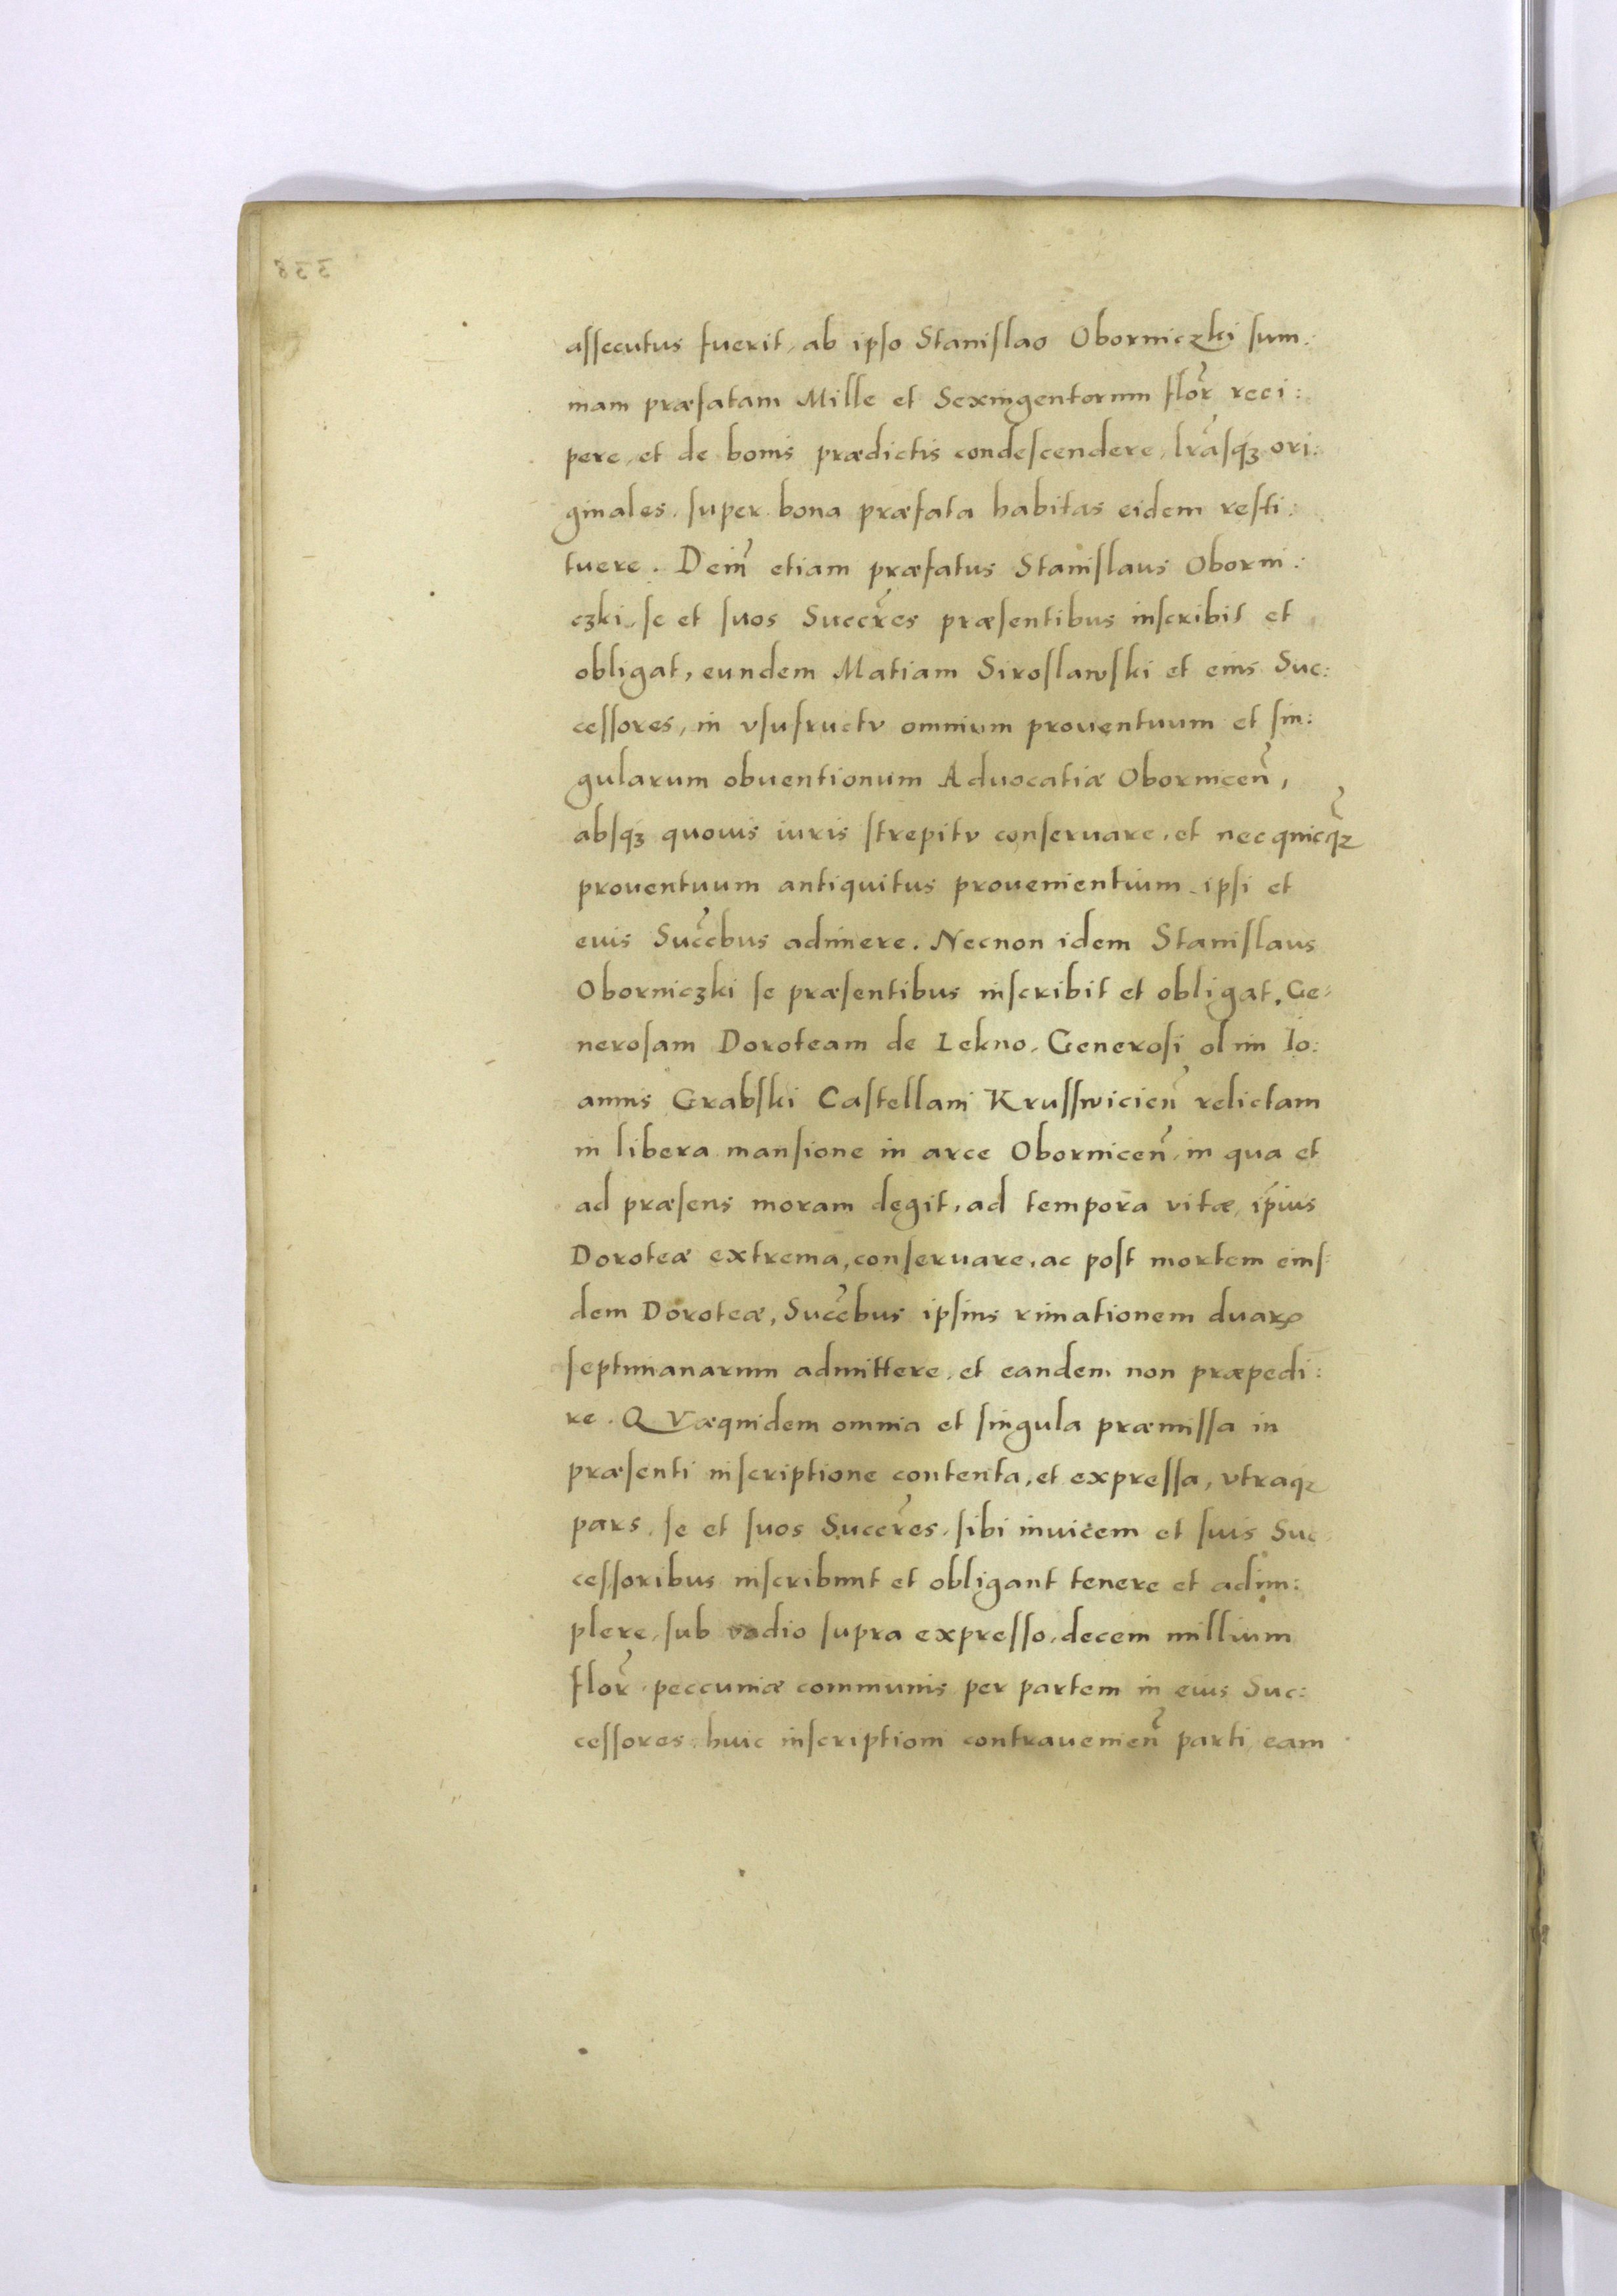 assecutus fuerit, ab ipso Stanislao Oborniczki sum:
mam præfatam Mille et Sexingentorum flor̃ reci:
pere, et de bonis prædictis condescendere, lr̃asqꝫ ori:
ginales, super bona præfata habitas eidem resti:
tuere. Dein̄ etiam præfatus Stanislaus Oborni:
czki, se et suos Succr̃es præsentibus inscribit et
obligat, eundem Matiam Siroslawski et eius Suc:
cessores, in vsufructv omnium prouentuum et sin:
gularum obuentionum Aduocatiæ Obornicen̄,
absqꝫ quouis iuris strepitv conseruare, et nec quicq̃ꝫ
prouentuum antiquitus prouenientium ipsi et
euis Succ̃bus adimere. Necnon idem Stanislaus
Oborniczki se præsentibus inscribit et obligat, Ge:
nerosam Doroteam de Lekno, Generosi olim Io:
annis Grabski Castellani Krusswicien̄ relictam
in libera mansione in arce Obornicen̄, in qua et
ad præsens moram degit, ad tempora vitæ, ip̃ius
Doroteæ extrema, conseruare, ac post mortem eius:
dem Doroteæ, Succ̃bus ipsius rimationem duarꝝ
septimanarum admittere, et eandem non præpedi:
re. QVæquidem omnia et singula præmissa in
præsenti inscriptione contenta, et expressa, vtraqꝫ
pars, se et suos Succr̃es, sibi inuicem et suis Suc
cessoribus inscribunt et obligant tenere et adim:
plere, sub vadio supra expresso, decem millium
flor̃ peccuniæ communis per partem in eius Suc:
cessores huic inscriptioni contrauenien̄ parti eam